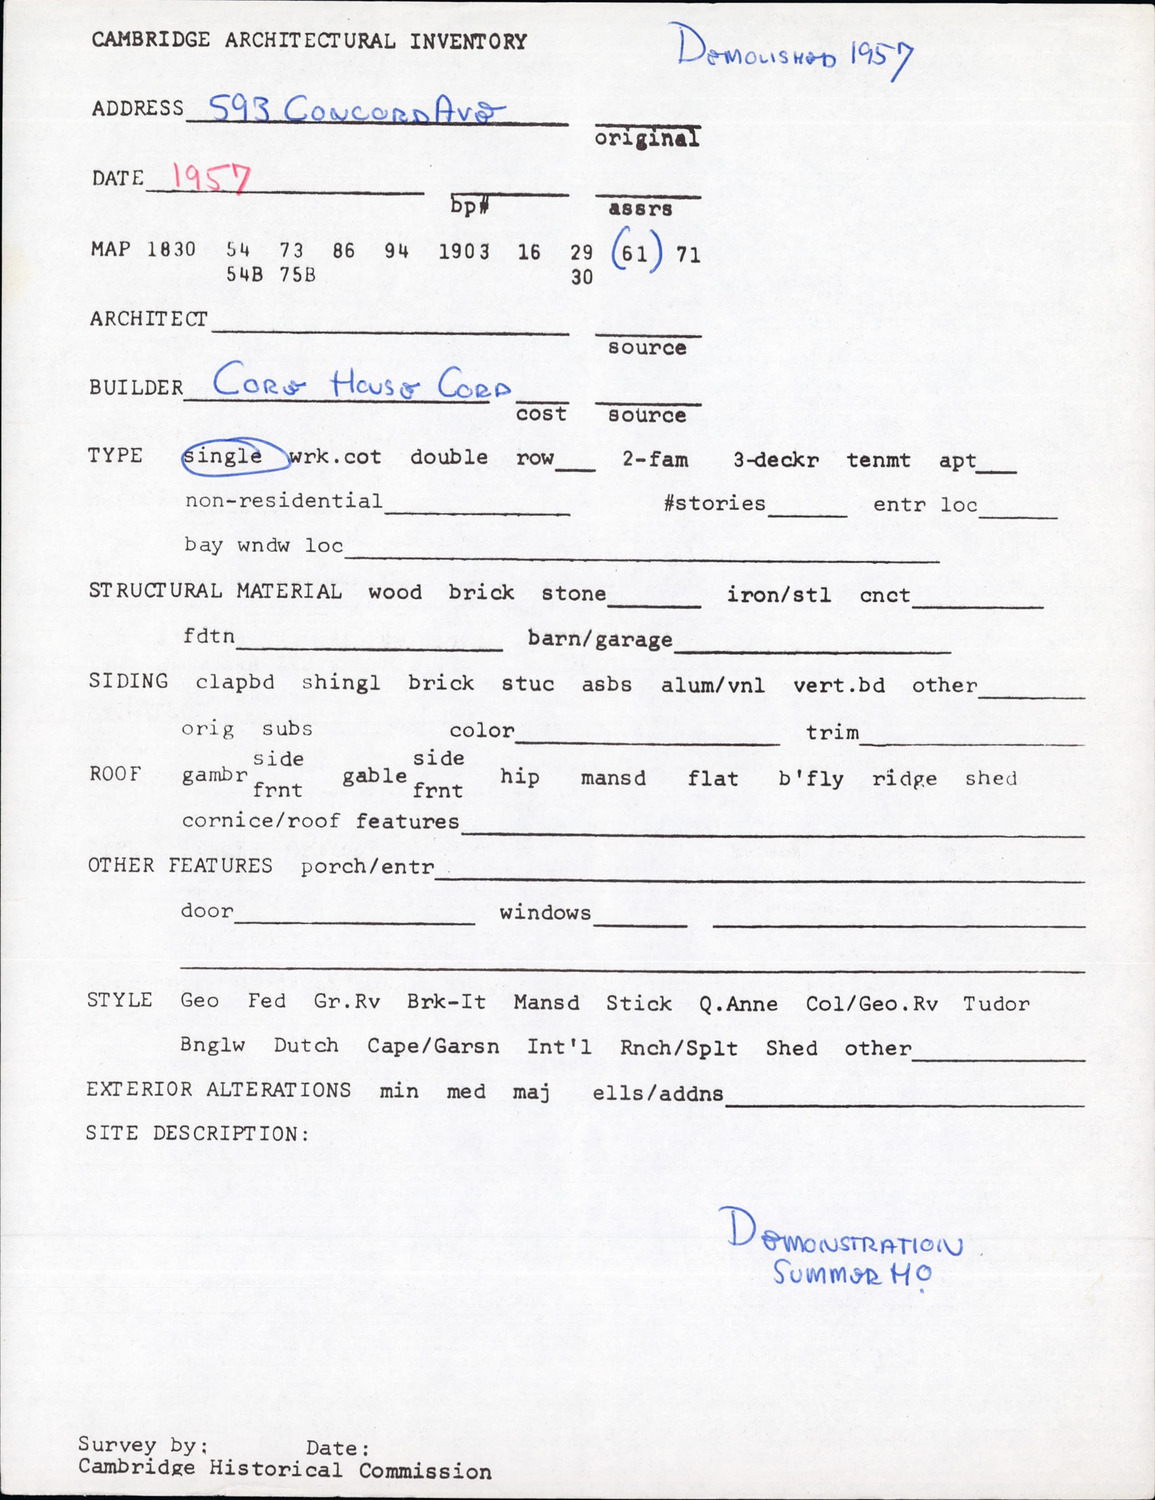 CAMBRIDGE ARCHITECTURAL INVENTORY
DEMOLISHED 1957
ADDRESS 593 CONCORD AVE
original
DATE 1957
bp# assrs
MAP 1830 54 73 86 94 1903 16 29 (61) 71
54B 75B 30
ARCHITECT
source
BUILDER CORE HOUSE CORP
cost source
TYPE single wrk.cot double row 2-fam 3-deckr tenmt apt
non-residential #stories entr loc
bay wndw loc
STRUCTURAL MATERIAL wood brick stone iron/stl cnct
fdtn barn/garage
SIDING clapbd shingl brick stuc asbs alum/vnl vert.bd other
orig subs color trim
side side
ROOF gambr gable hip mansd flat b'fly ridge shed
frnt frnt
cornice/roof features
OTHER FEATURES porch/entr
door windows
STYLE Geo Fed Gr.Rv Brk-It Mansd Stick Q.Anne Col/Geo.Rv Tudor
Bnglw Dutch Cape/Garsn Int'l Rnch/Splt Shed other
EXTERIOR ALTERATIONS min med maj ells/addns
SITE DESCRIPTION:
DEMONSTRATION
SUMMER HO.
Survey by: Date:
Cambridge Historical Commission